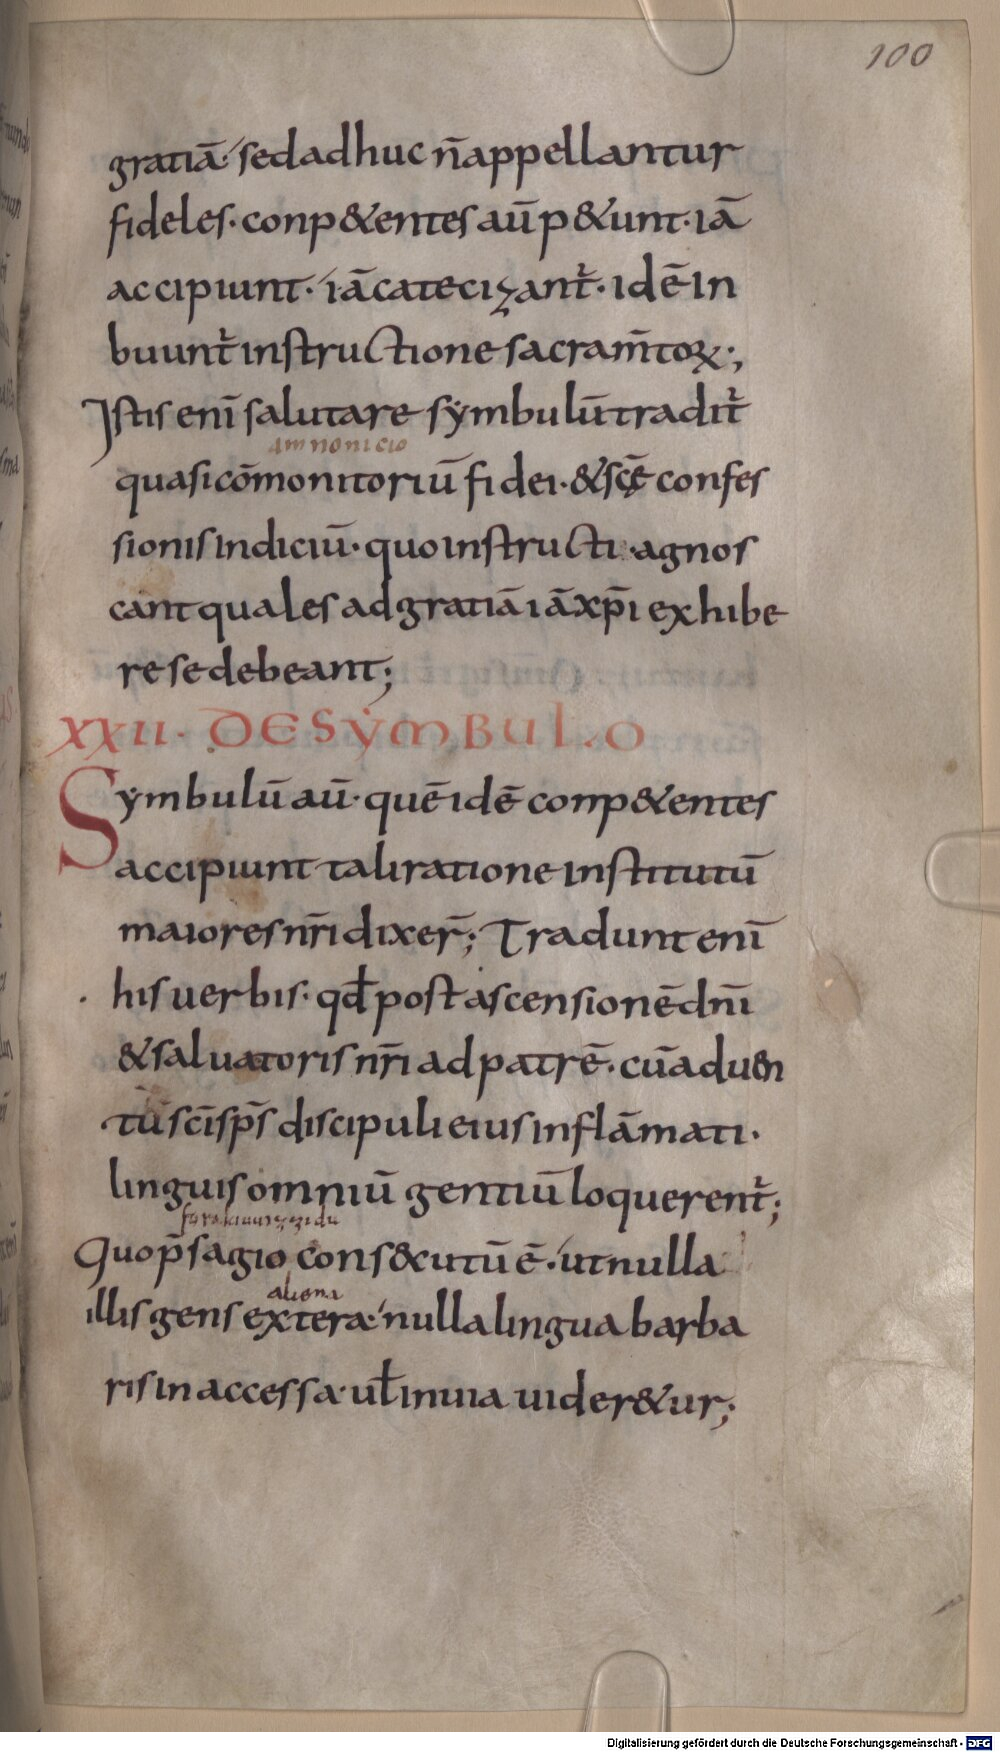 100
gratiā· sed adhuc n̄ appellantur
fideles· conp&entes aū p&unt· iā
accipiunt· iā catecizant᷑· idē in
buunt᷑ instructione sacram̄toꝝ;
Istis enī salutare sẏmbulū tradit᷑
amnonicio
quasi cōmonitoriū fidei· & sc̄ę confes
sionis indiciū· quo instructi· agnos
cant quales ad gratiā iā xp̄i exhibe
re se debeant;
XXII· DE SẎMBULO
Sẏmbulū aū· quē idē conp&entes
accipiunt tali ratione institutū
maiores nr̄i dixer̄; Tradunt enī
his uerbis· qd̄ post ascensionē dn̄i
& saluatoris nr̄i ad patrē· cū aduen
tū sc̄i sp̄s discipuli eius inflāmati·
linguis omniū gentiū loquerent᷑;
forakiuuizzidu
Quo p̄sagio cons&cutū ē· ut nulla
aliona
illis gens extera· nulla lingua barba
ris inaccessa· ul̄ inuia uider&ur;
Digitalisierung gefördert durch die Deutsche Forschungsgemeinschaft - DFG